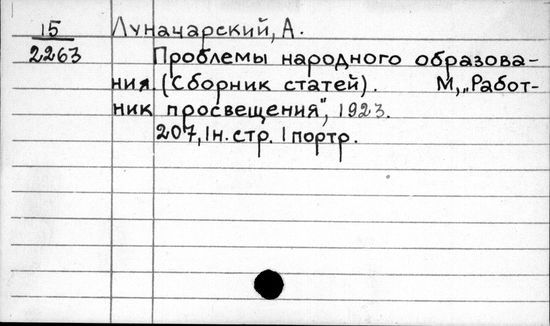 15 Луначарский, А.
2263 Проблемы народного образова-
ния (Сборник статей). М, „Работ-
ник просвещения", 1923.
207, 1н. стр. 1 портр.